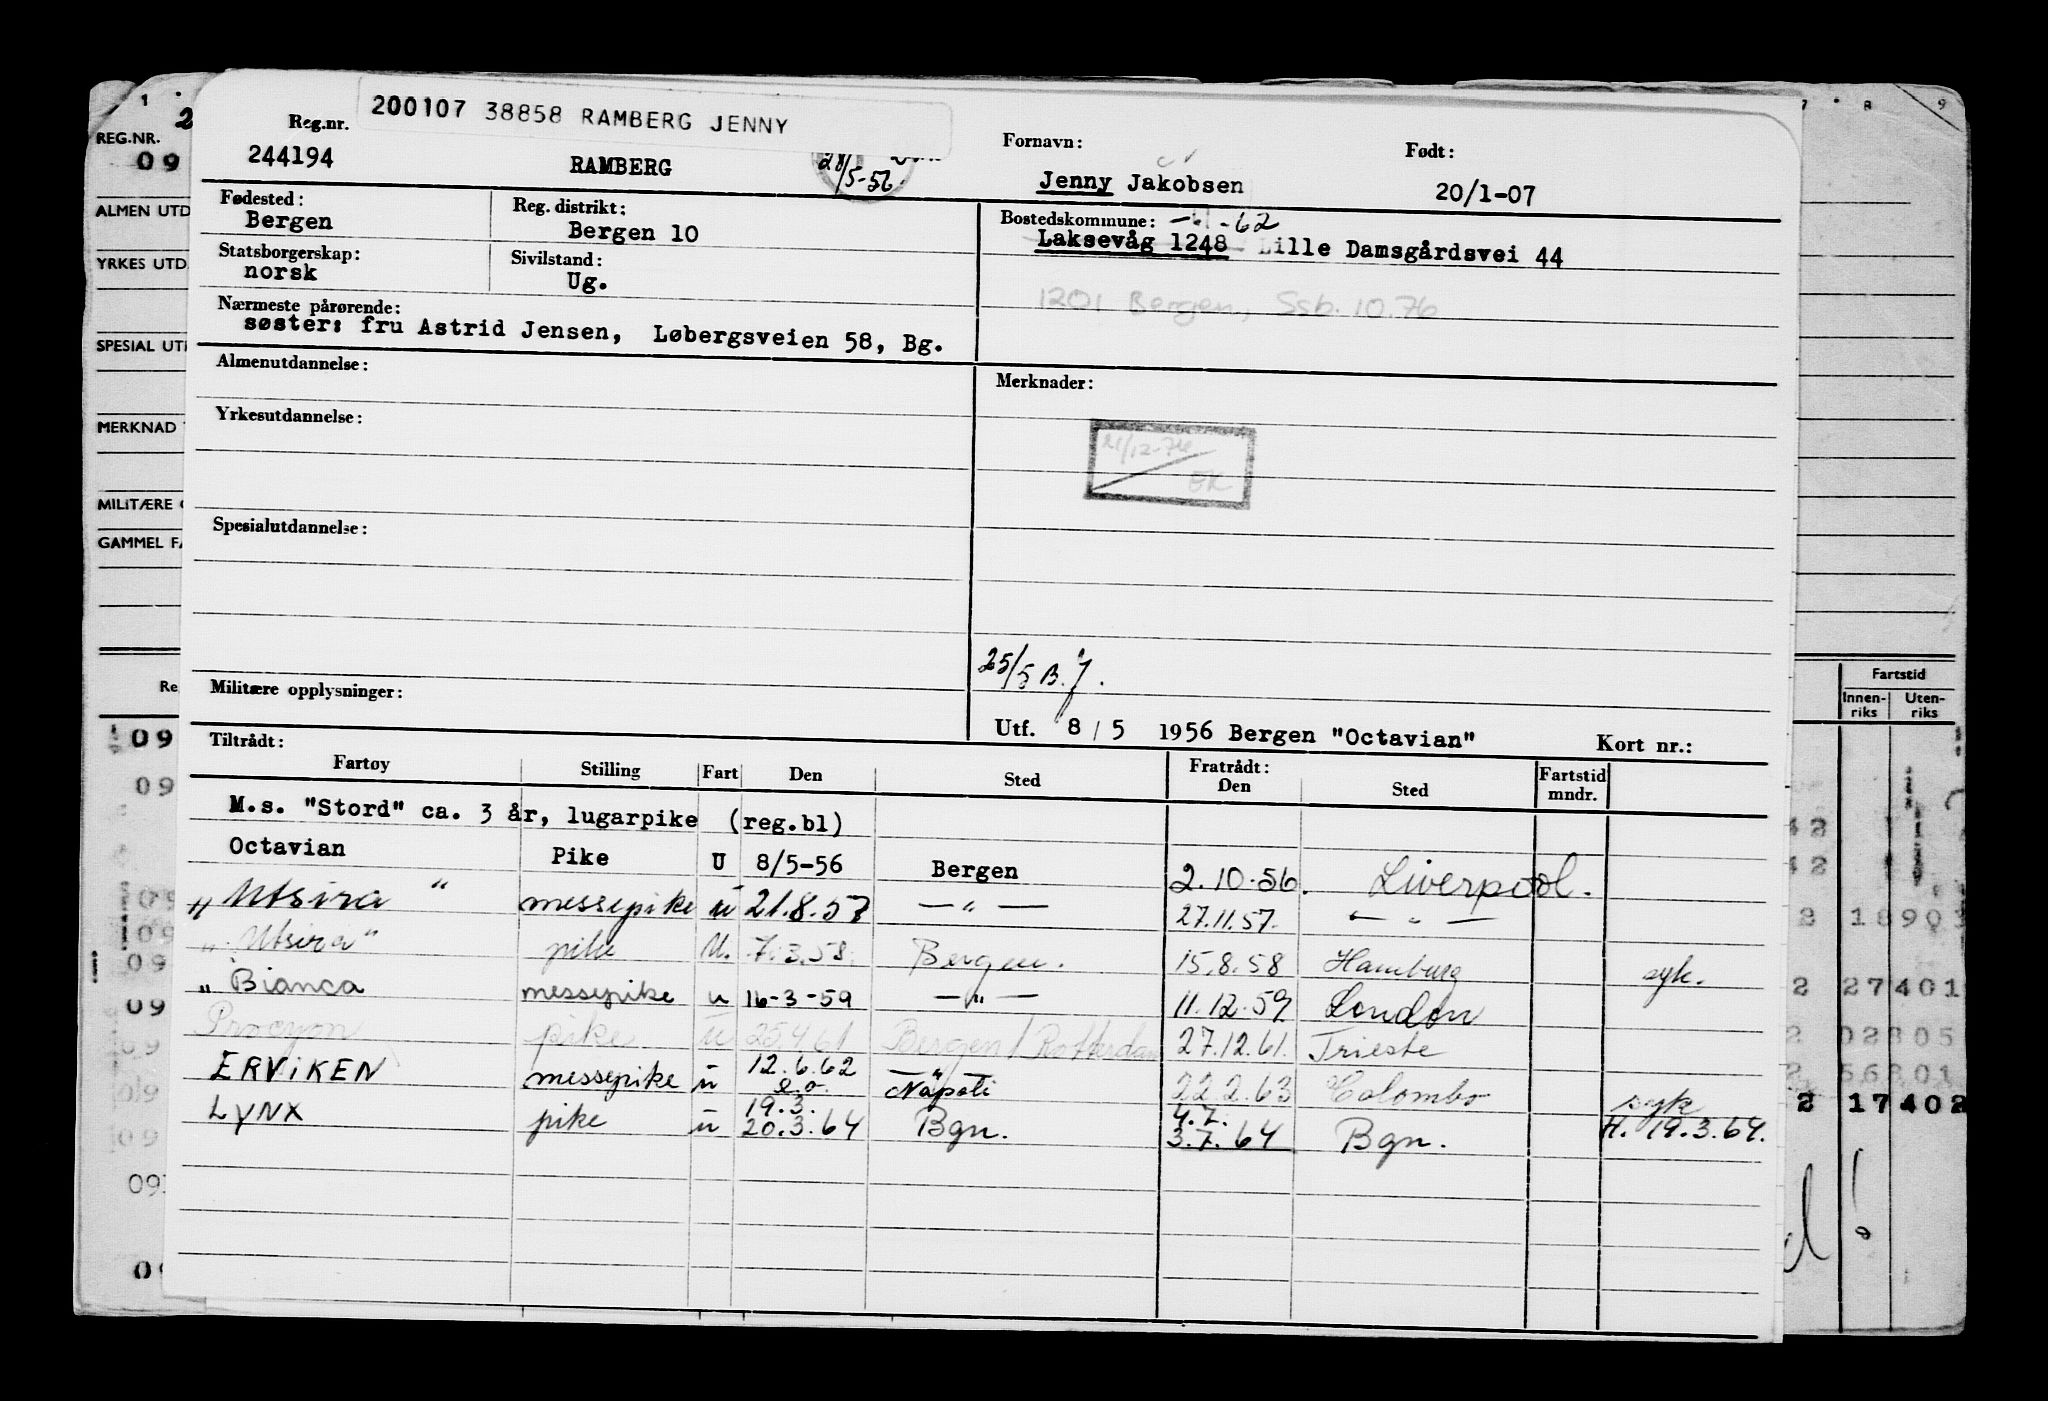 200107 38858 RAMBERG JENNY
Reg.nr.
244194
RAMBERG
28/5-56.
Fornavn:
Jenny Jakobsen
Født:
20/1-07
Fødested:
Bergen
Reg. distrikt:
Bergen 10
Bostedskommune: -62
Laksevåg 1248 Lille Damsgårdsvei 44
Statsborgerskap:
norsk
Sivilstand:
Ug.
1201 Bergen, Ssb. 10.76
Nærmeste pårørende:
søster: fru Astrid Jensen, Løbergsveien 58, Bg.
Almenutdannelse:
Merknader:
Yrkesutdannelse:
Spesialutdannelse:
25/5 B.J.
Militære opplysninger:
Utf. 8/5 1956 Bergen "Octavian"
Kort nr.:
Tiltrådt:
Fratrådt:
Fartøy Stilling Fart Den Sted Den Sted Fartstid mndr.
M.s. "Stord" ca. 3 år, lugarpike (reg.bl)
Octavian Pike U 8/5-56 Bergen 2.10.56. Liverpool.
" Utsira " messepike u 21.8.57 — " — 27.11.57. — " —
" Utsira " pike U. 7.3.58. Bergen. 15.8.58 Hamburg syk.
" Bianca messepike u 16-3-59 — " — 11.12.59 London
Procyon pike u 25.4.61 Bergen/Rotterdam 27.12.61. Trieste
ERVIKEN messepike u 12.6.62 e.o. Napoli 22.2.63 Colombo syk
LYNX pike u 19.3. 20.3.64 Bgn. 4.7. 3.7.64 Bgn. H. 19.3.64.
REG.NR.
09
ALMEN UTD
YRKES UTD.
SPESIAL UT
MERKNAD
MILITÆRE
GAMMEL FA
Re
Fartstid
Innen-riks Uten-riks
09
09
09
09
09
09
2 18903
2 27401
2 02805
2 56801
2 17402